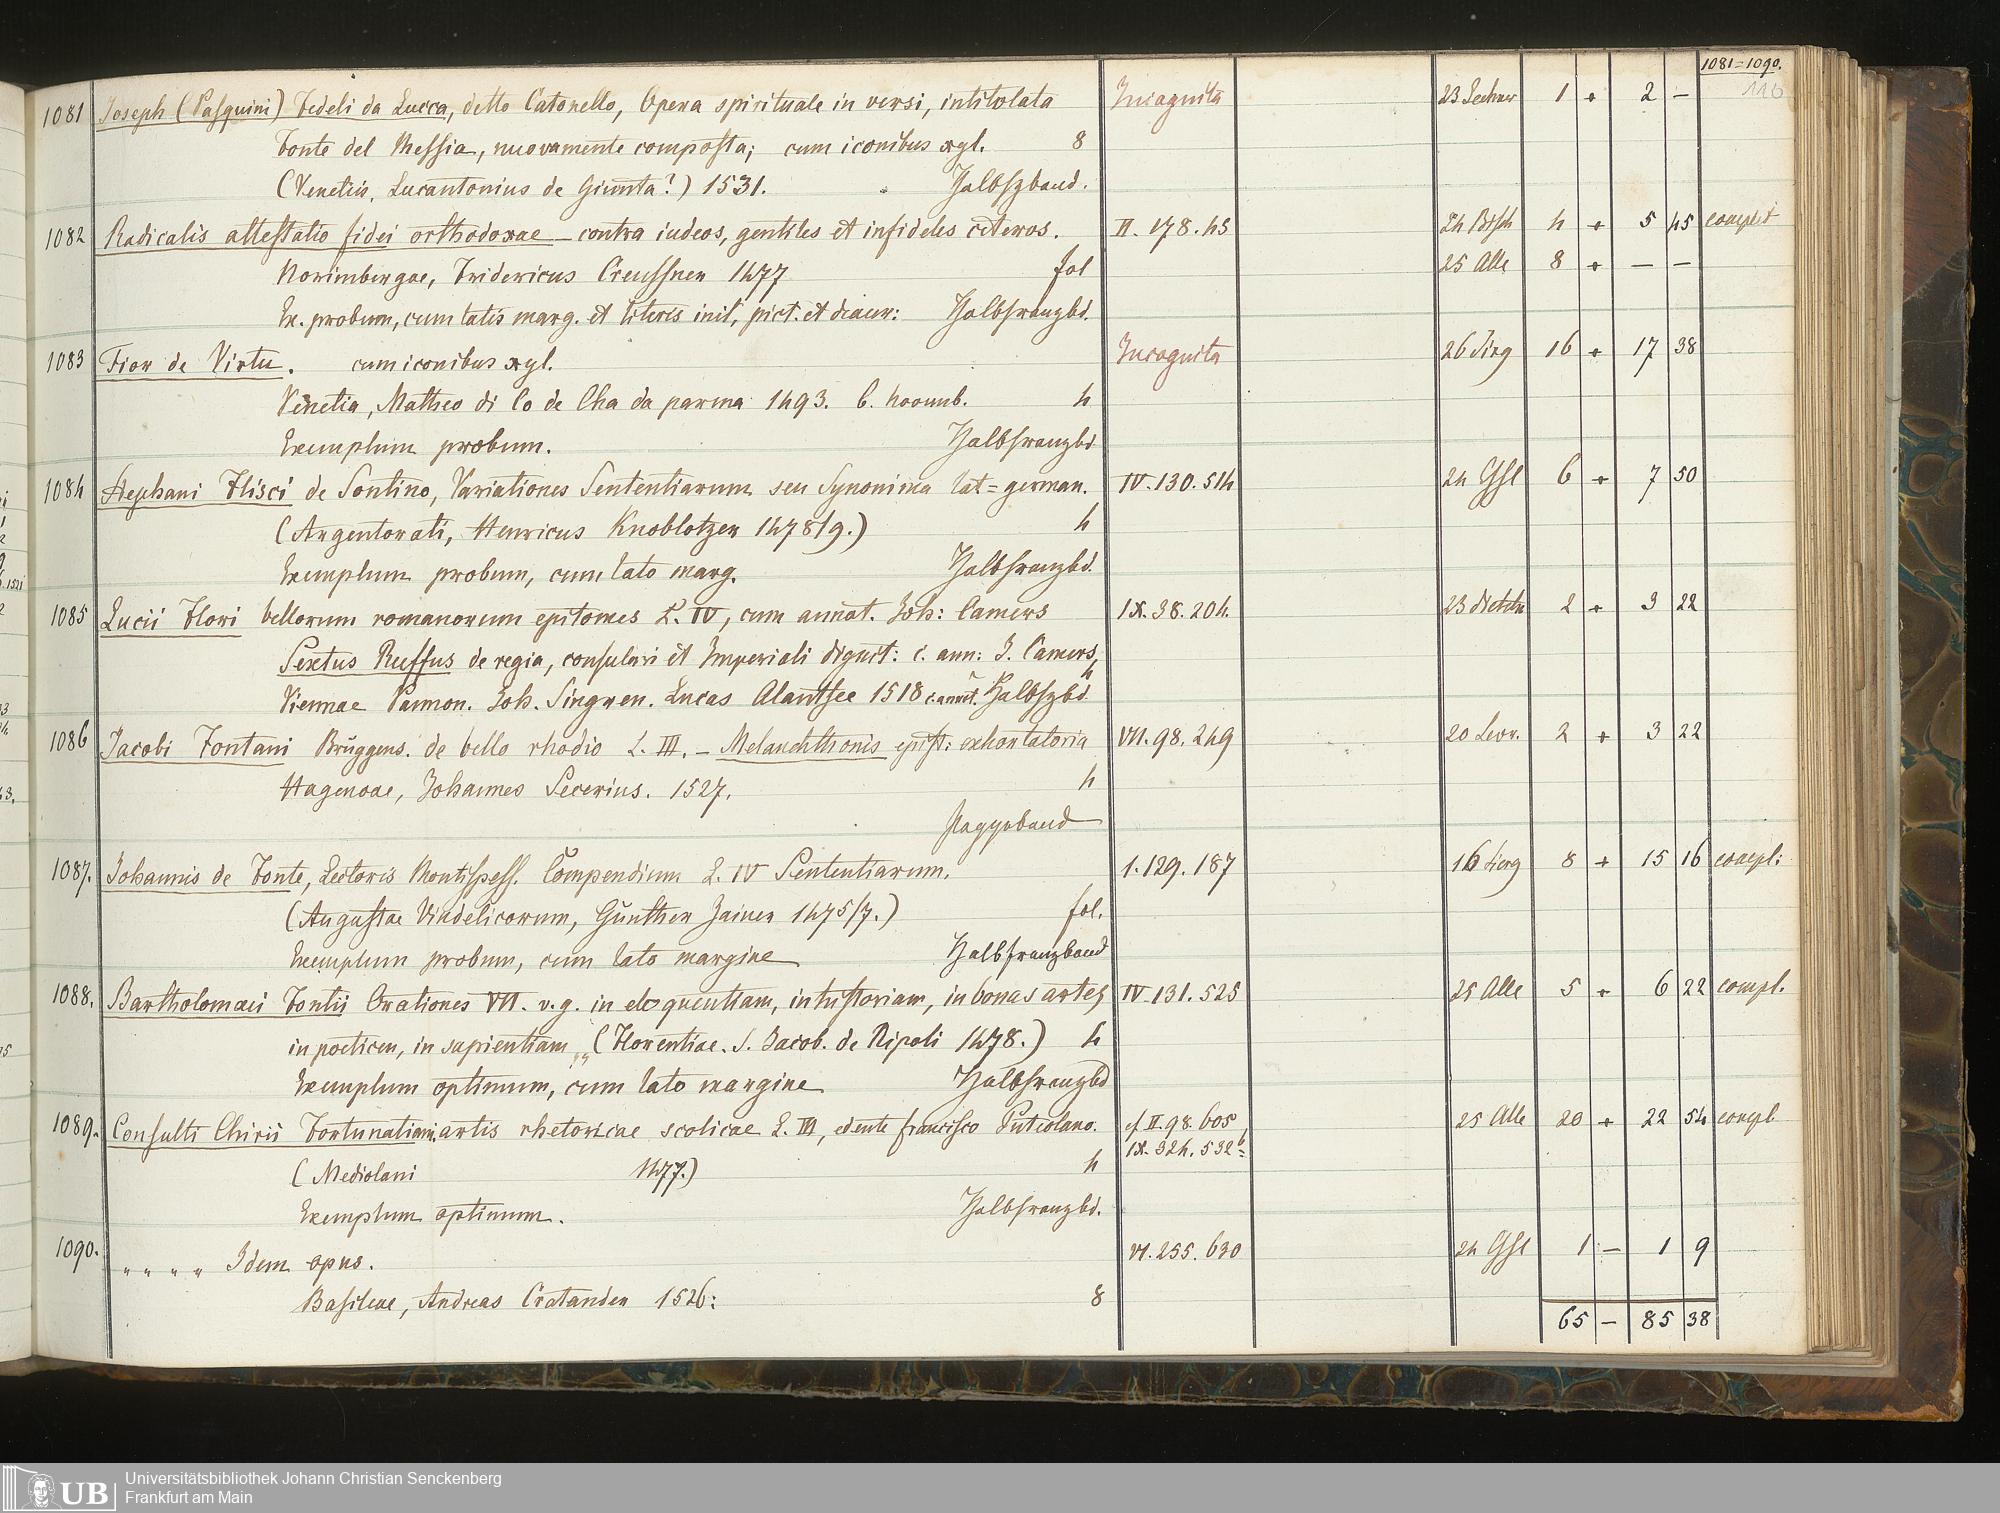 1081=1090.
116
1081 Joseph (Pasquini) Fedeli da Lucca, detto Catonello, Opera spirituale in versi, intitolata Incognita 23 Lechner 1 + 2 —
Fonte del Messia, nuovamente composta; cum iconibus xyl. 8
(Venetiis, Lucantonius de Giunta?) 1531. Halbfzband.
1082 Radicalis attestatio fidei orthodoxae — contra iudeos, gentiles et infideles ceteros. II. 178. 45 24 Btsch 4 + 5 45 complet
Norimbergae, Fridericus Creussner 1477 fol 25 Alle 8 + — —
Ex. probum, cum latis marg. et literis init, pict. et deaur: Halbfranzbd.
1083 Fior de Virtu. cum iconibus xyl. Incognita 26 Jirg 16 + 17 38
Venetia, Mattheo di Co de Cha da parma 1493. 6. novemb. 4
Exemplum probum. Halbfranzbd
1084 Stephani Flisci de Sontino, Variationes Sententiarum seu Synonima lat=german. IV. 130. 514 24 Gsl 6 + 7 50
(Argentorati, Henricus Knoblotzer 1478/9.) 4
Exemplum probum, cum lato marg. Halbfranzbd.
1085 Lucii Flori bellorum romanorum epitomes L. IV, cum annat. Joh: Camers IX. 38. 204. 23 2 + 3 22
Sextus Ruffus de regia, consulari et Imperiali dignit: c. ann: J. Camers, 4
Viennae Pannon. Joh. Singren. Lucas Alantsee 1518 c. annot. Halbfzbd
1086 Jacobi Fontani Brüggens. de bello rhodio L. III. — Melanchthonis epist: exhortatoria VII. 98. 249 20 Leov. 2 + 3 22
Hagenoae, Johannes Secerius. 1527. 4
Pappband
1087. Johannis de Fonte, Lectoris Montispess. Compendium L. IV Sententiarum. 1. 129. 187 16 8 + 15 16 compl:
(Augustae Vindelicorum, Günther Zainer 1475/7.) fol.
Exemplum probum, cum lato margine Halbfranzband
1088. Bartholomaei Fontii Orationes VII. v. g. in eloquentiam, in historiam, in bonas artes IV. 131. 525 25 Alle 5 + 6 22 compl.
in poeticen, in sapientiam „ (Florentiae. S. Jacob. de Ripoli 1478.) 4
Exemplum optimum, cum lato margine Halbfranzbd
1089. Consulti Chirii Fortunatiani artis rhetoricae scolicae L. III, edente francisco Puteolano. cf II. 98. 605, 25 Alle 20 + 22 54 compl
IX. 324. 532b=
(Mediolani 1477.) 4
Exemplum optimum. Halbfranzbd.
1090. „ „ „ „ Idem opus. VI. 255. 630 24 Gsl 1 — 1 9
Basileae, Andreas Cratander 1526: 8
65 — 85 38
UB
Universitätsbibliothek Johann Christian Senckenberg
Frankfurt am Main